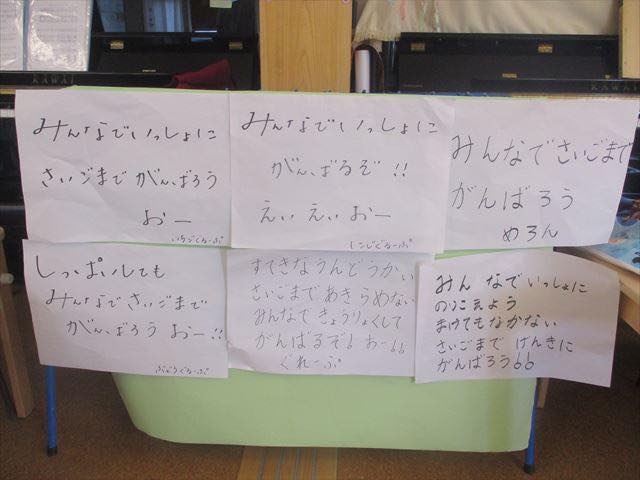 KAWAI
KAWAI
みんなでいっしょに
さいごまで がんばろう
おー
いちごぐるーぷ
みんなでいっしょに
がんばるぞ!!
えい えい おー
みんなでさいごまで
がんばろう
めろん
しっぱいしても
みんなでさいごまで
がんばろう おー!!
ぶどうぐるーぷ
すてきなうんどうかい
さいごまであきらめない
みんなできょうりょくして
がんばるぞ! おー!!
ぐれーぷ
みんなでいっしょに
のりこえよう
まけてもなかない
さいごまで げんきに
がんばろう!!